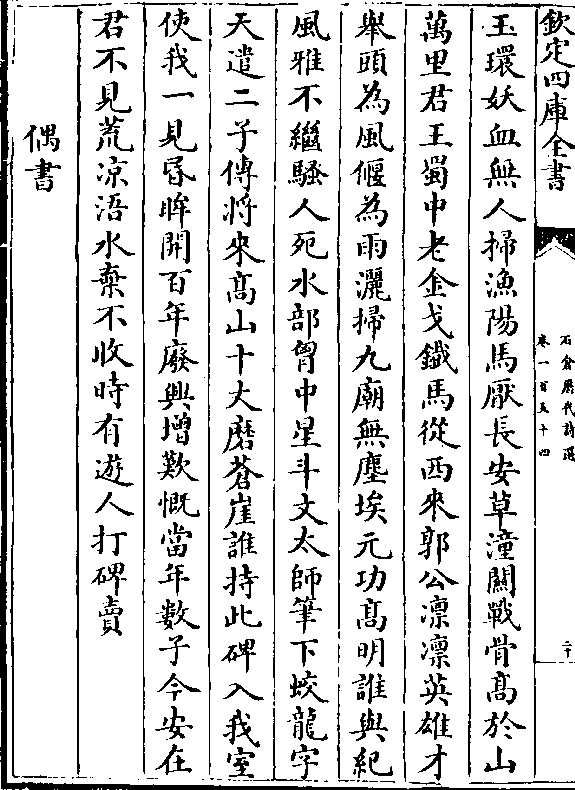 欽定四庫全書
石倉歷代詩選
卷一百五十四
二十
玉環妖血無人掃漁陽馬厭長安草潼關戰骨高於山
萬里君王蜀中老金戈鐵馬從西來郭公凛凛英雄才
舉頭為風偃為雨灑掃九廟無塵埃元功高明誰與紀
風雅不繼騷人死水部胷中星斗文太師筆下蛟龍字
天遣二子傳將來高山十丈磨蒼崖誰持此碑入我室
使我一見昬眸開百年廢興增歎慨當年數子今安在
君不見荒凉浯水棄不收時有遊人打碑賣
偶書